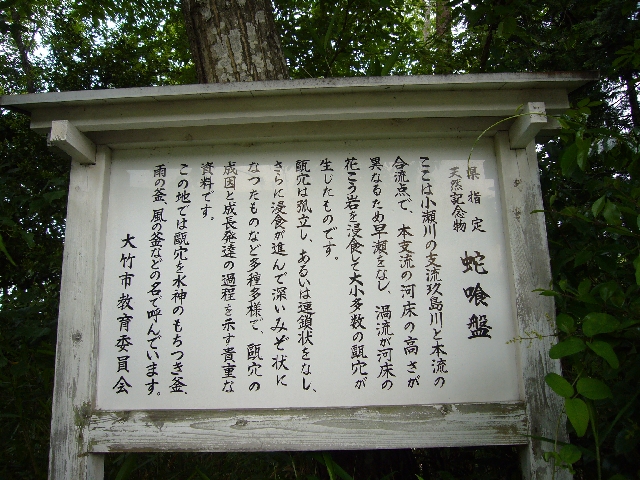 県指定
天然記念物
蛇喰盤
ここは小瀬川の支流玖島川と本流の
合流点で、本支流の河床の高さが
異なるため早瀬をなし、渦流が河床の
花こう岩を浸食して大小多数の甌穴が
生じたものです。
甌穴は孤立し、あるいは連鎖状をなし、
さらに浸食が進んで深いみぞ状に
なつたものなど多種多様で、甌穴の
成因と成長発達の過程を示す貴重な
資料です。
この地では甌穴を水神のもちつき釜、
雨の釜、風の釜などの名で呼んでいます。
大竹市教育委員会